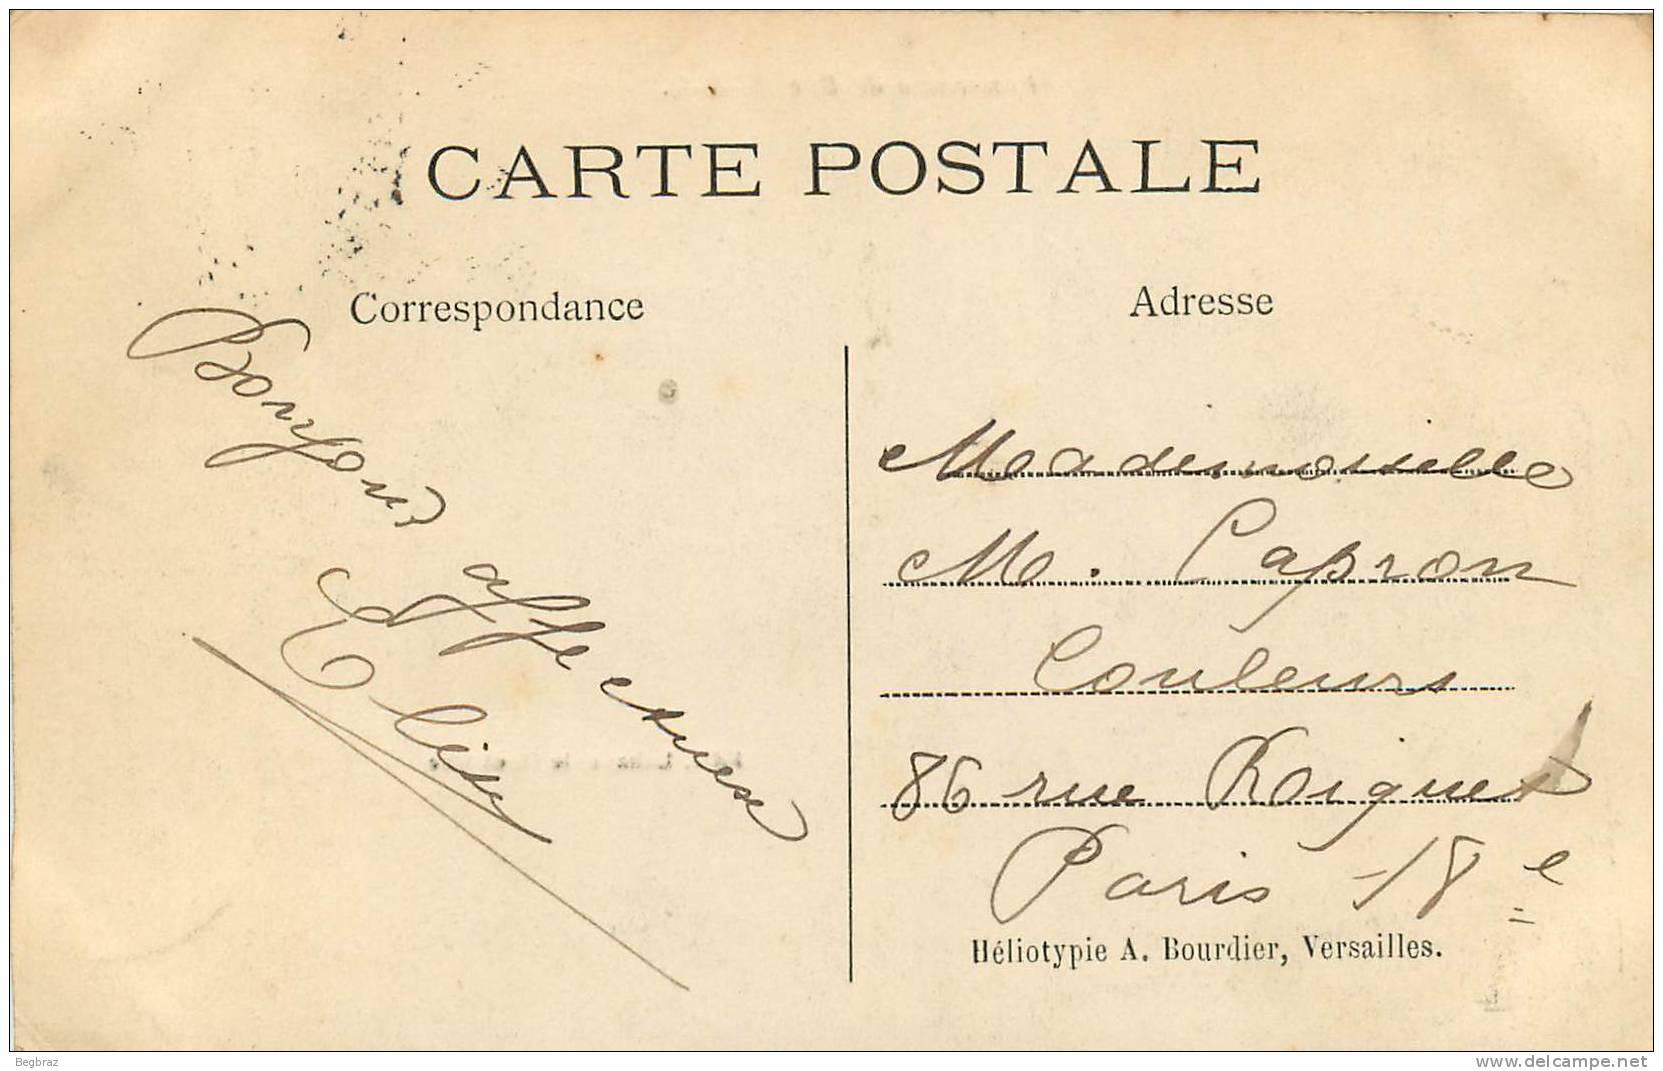 CARTE POSTALE
Correspondance
Adresse
Bonjour
affectueux
Mademoiselle
M. Capron
Couleurs
86 rue
Paris -18e
Héliotypie A. Bourdier, Versailles.
Begbraz
www.delcampe.net